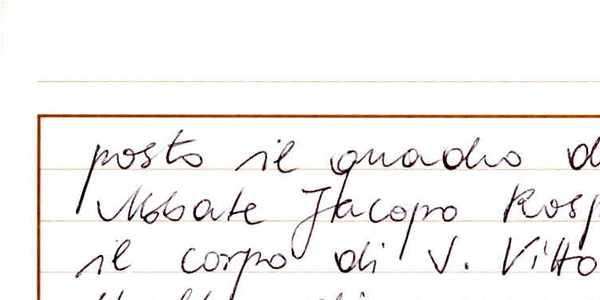 posto il quadro d
Abbate Jacopo Rosp
il corpo di V. Vitto